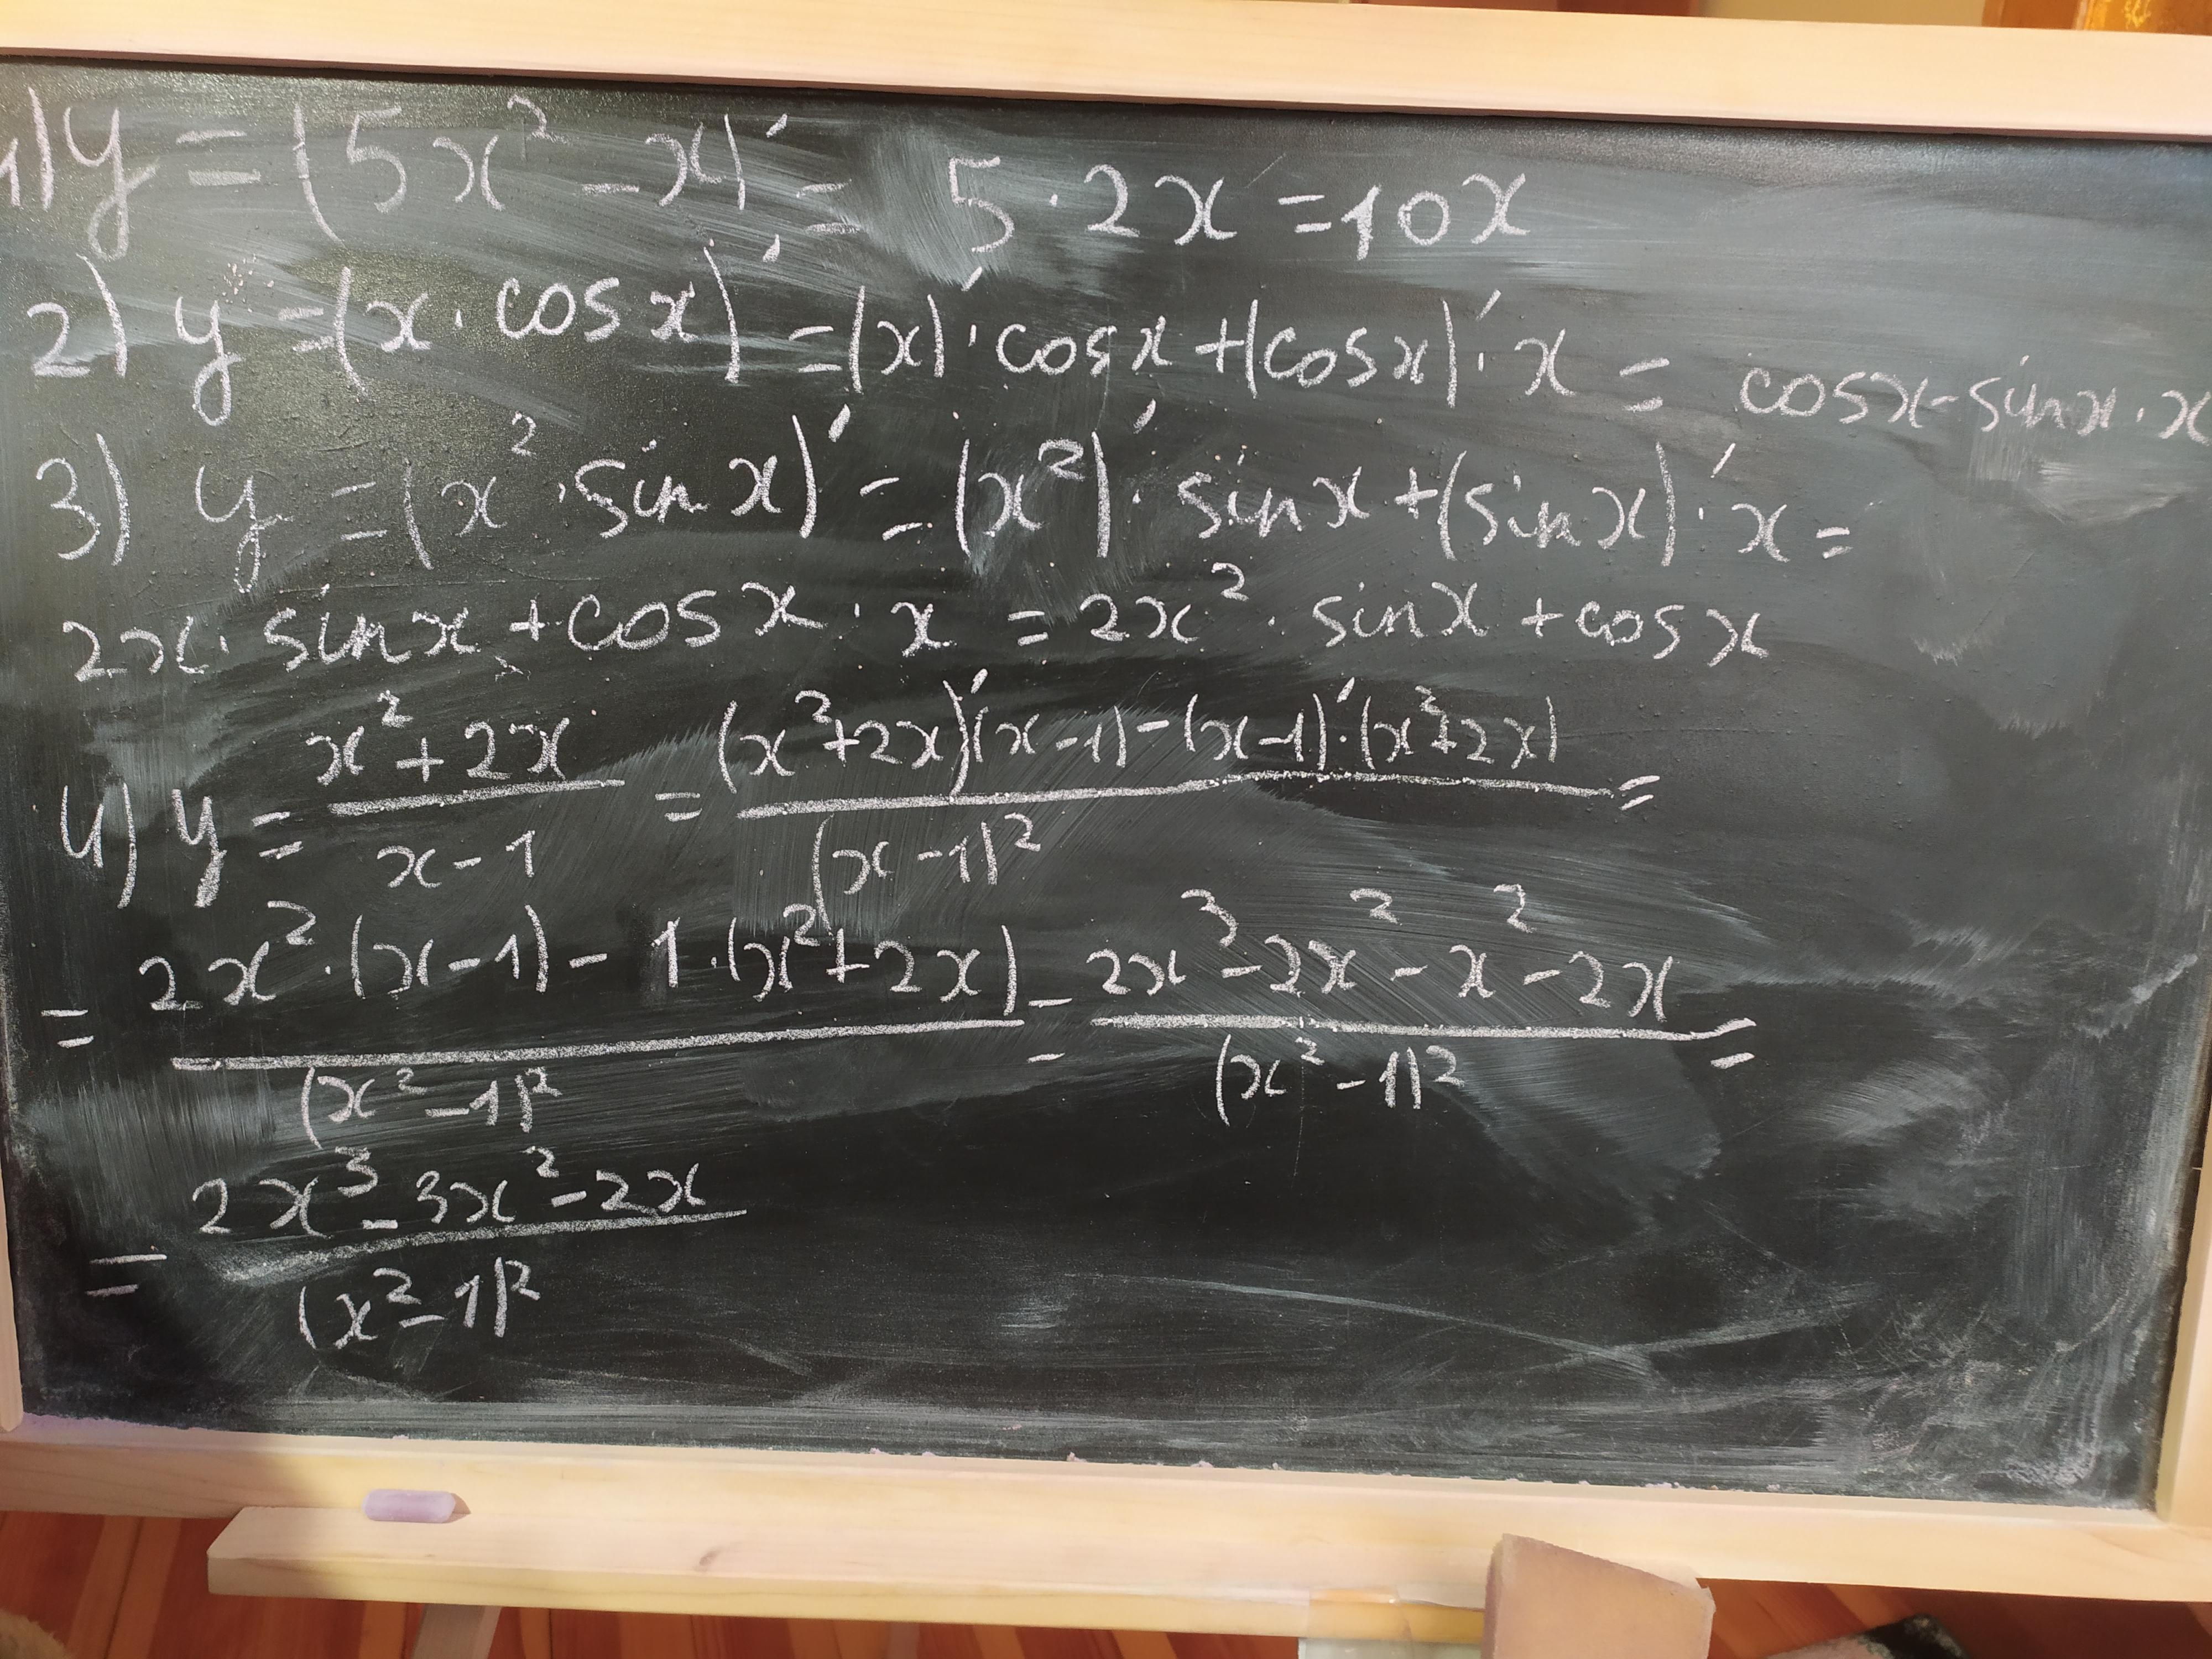 1) y = (5x² - x)' = 5·2x = 10x
2) y = (x·cosx)' = (x)'·cosx + (cosx)'·x = cosx - sinx·x
3) y = (x²·sinx)' = (x²)'·sinx + (sinx)'·x =
2x·sinx + cosx·x = 2x²·sinx + cosx
4) y = (x² + 2x)/(x - 1) = ((x² + 2x)'(x - 1) - (x - 1)'·(x² + 2x))/(x - 1)² =
= (2x²·(x - 1) - 1·(x² + 2x))/(x² - 1)² = (2x³ - 2x² - x² - 2x)/(x² - 1)² =
= (2x³ - 3x² - 2x)/(x² - 1)²